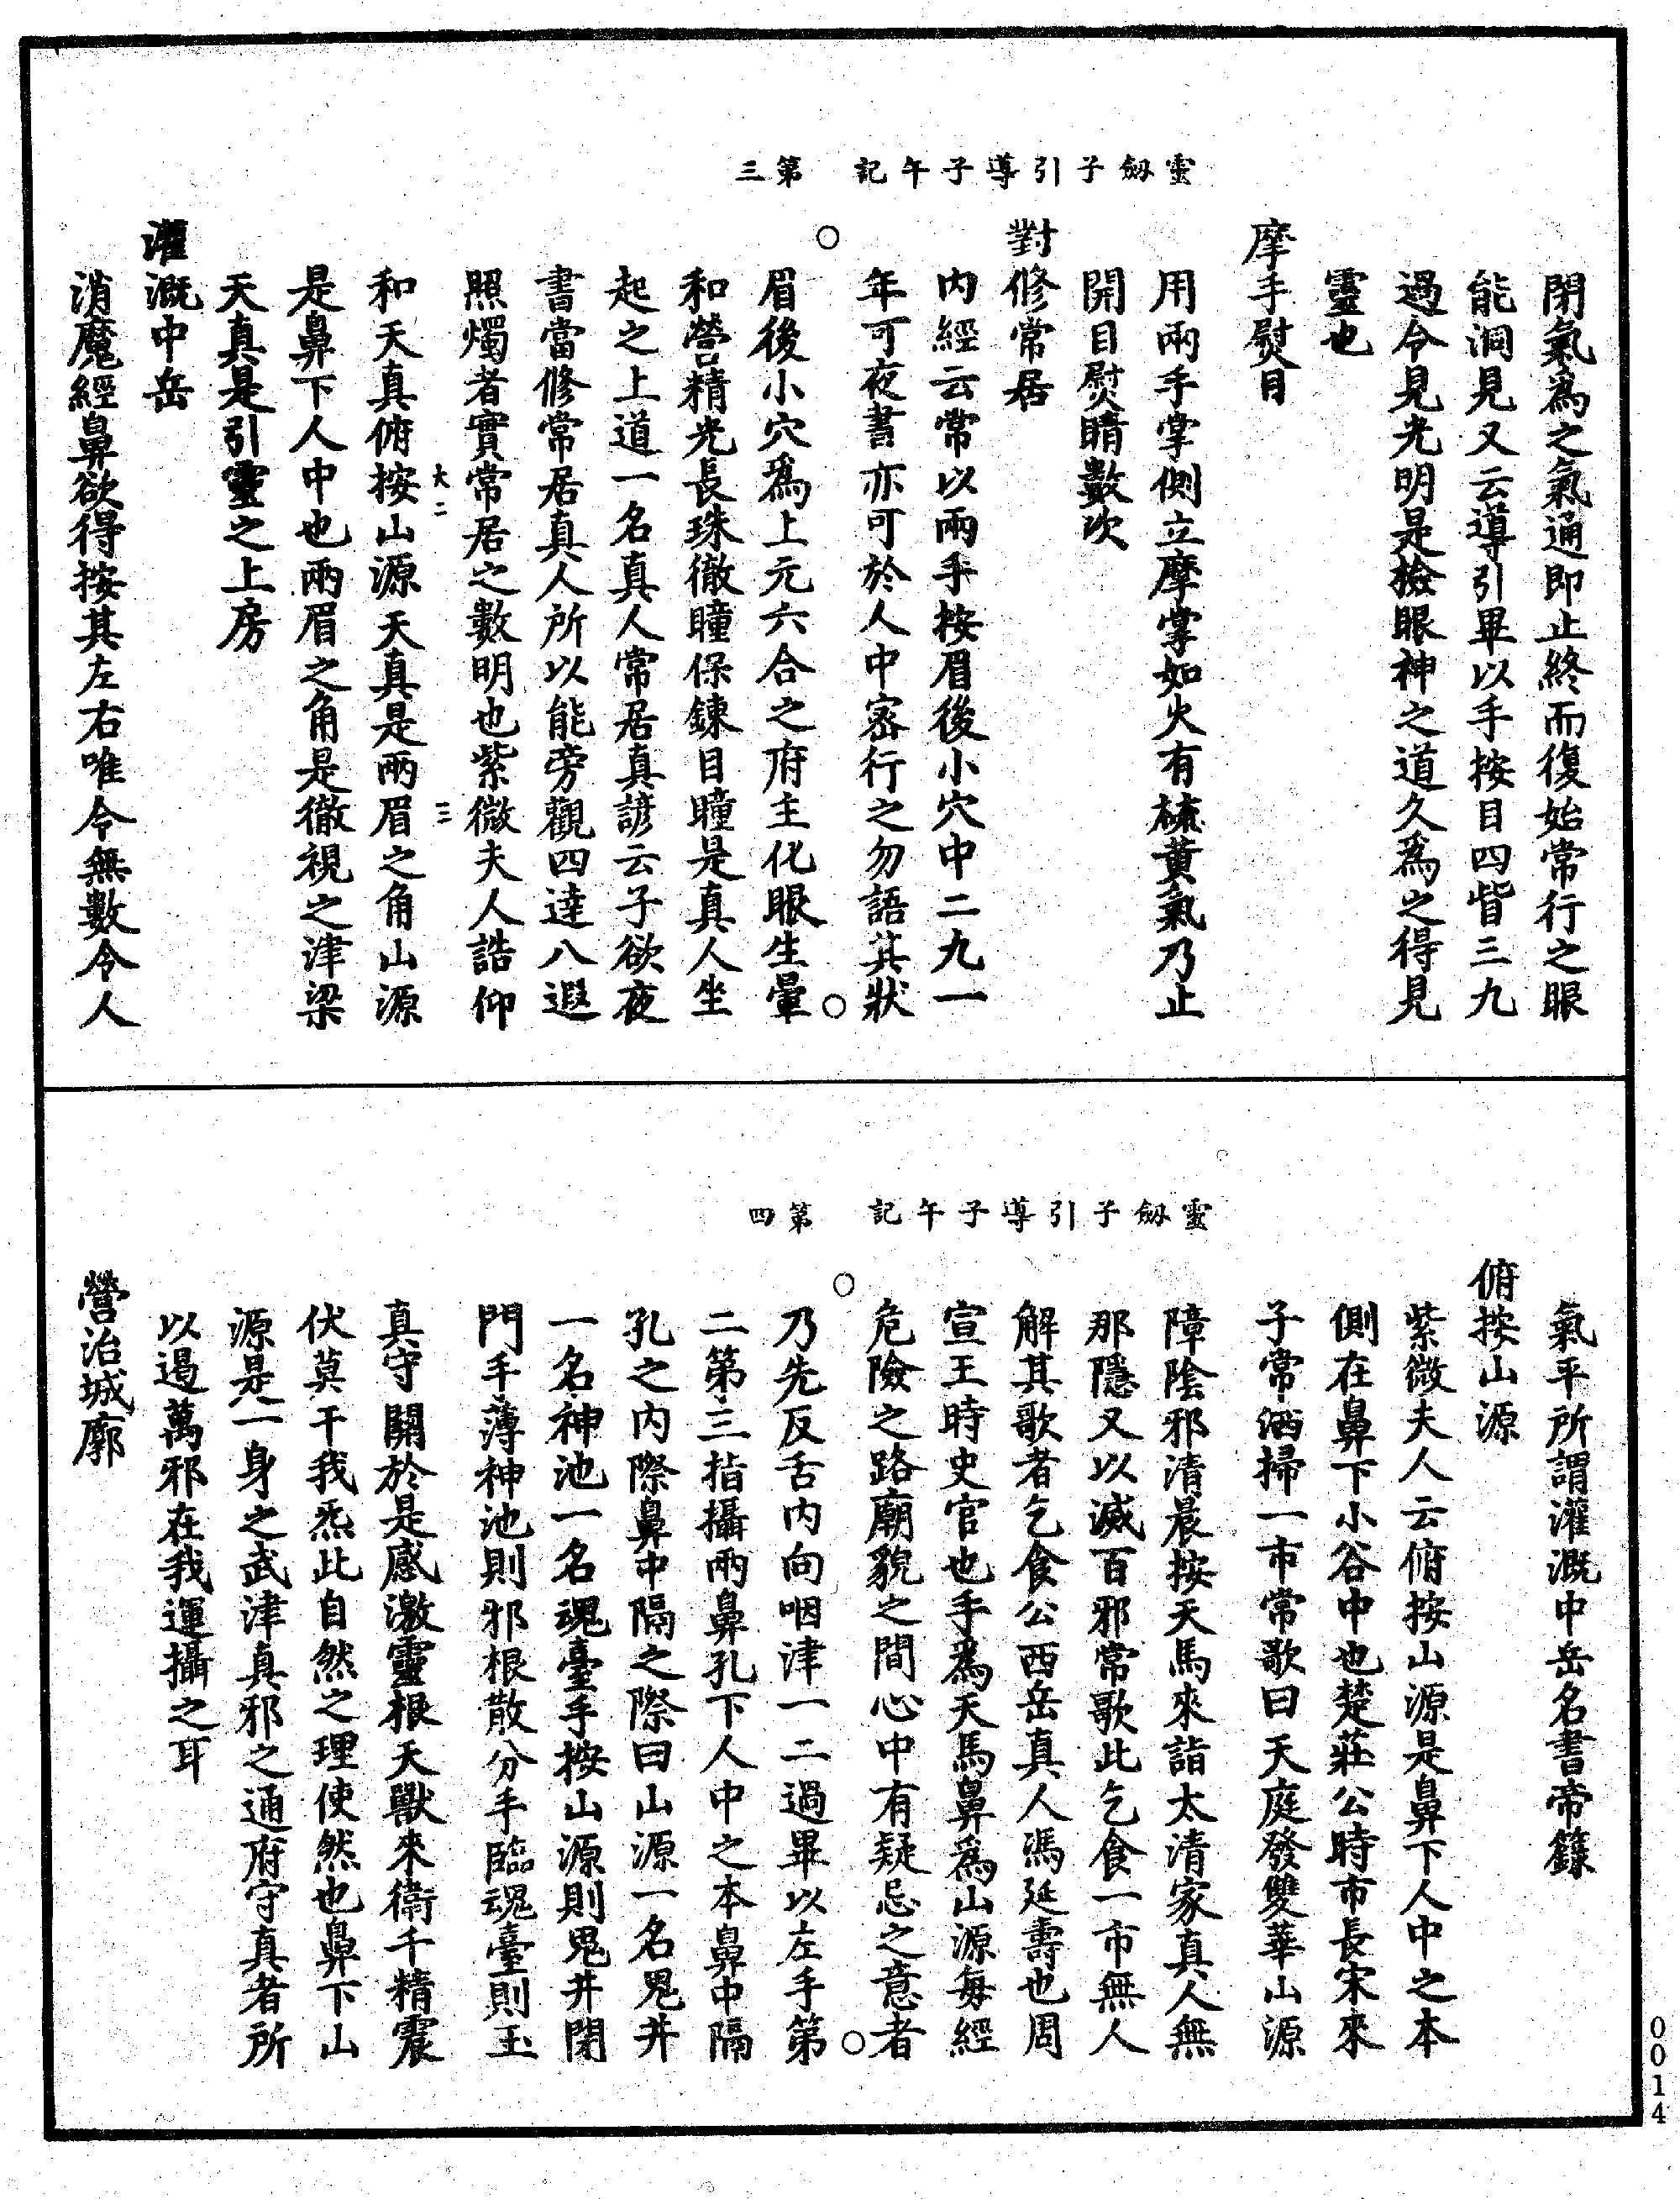 靈劔子引導子午記　第三
閉氣爲之氣通即止終而復始常行之眼
能洞見又云導引畢以手按目四眥三九
過令見光明是撿眼神之道久爲之得見
靈也
摩手熨目
用兩手掌側立摩掌如火有䃤黃氣乃止
開目熨睛數次
對修常居
内經云常以兩手按眉後小穴中二九一
年可夜書亦可於人中密行之勿語其狀
眉後小穴爲上元六合之府主化眼生暈
和營精光長珠徹瞳保鍊目瞳是真人坐
起之上道一名真人常居真諺云子欲夜
書當修常居真人所以能旁觀四達八遐
照燭者實常居之數明也紫微夫人誥仰
大二
三
和天真俯按山源天真是兩眉之角山源
是鼻下人中也兩眉之角是徹視之津梁
天真是引靈之上房
灌溉中岳
消魔經鼻欲得按其左右唯令無數令人
靈劔子引導子午記　第四
氣平所謂灌溉中岳名書帝籙
俯按山源
紫微夫人云俯按山源是鼻下人中之本
側在鼻下小谷中也楚莊公時市長宋來
子常洒掃一市常歌曰天庭發雙華山源
障陰邪清晨按天馬來詣太清家真人無
那隱又以滅百邪常歌此乞食一市無人
解其歌者乞食公西岳真人馮延壽也周
宣王時史官也手爲天馬鼻爲山源每經
危險之路廟貌之間心中有疑忌之意者
乃先反舌内向咽津一二過畢以左手第
二第三指攝兩鼻孔下人中之本鼻中隔
孔之内際鼻中隔之際曰山源一名鬼井
一名神池一名魂臺手按山源則鬼井閉
門手薄神池則邪根散分手臨魂臺則玉
真守關於是感激靈根天獸來衛千精震
伏莫干我炁此自然之理使然也鼻下山
源是一身之武津真邪之通府守真者所
以遏萬邪在我運攝之耳
營治城廓
0014